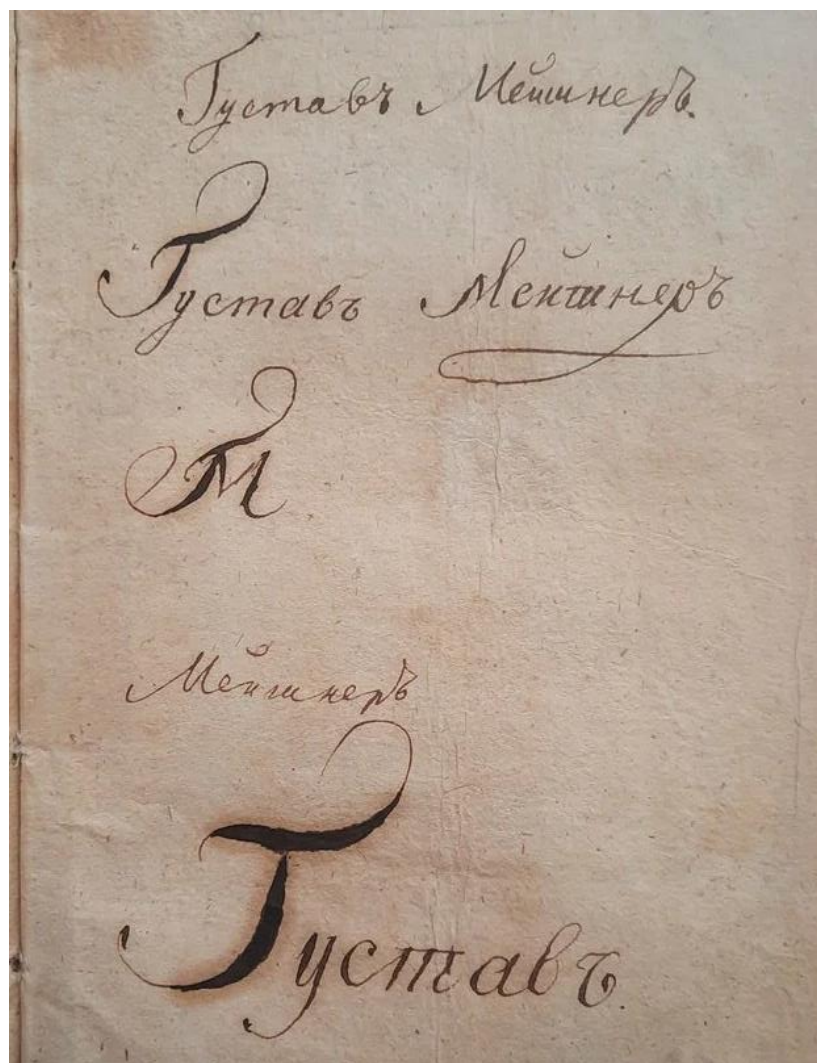 Густавъ Мейшнеръ.
Густавъ Мейшнеръ
ГМ
Мейшнеръ
Густавъ.